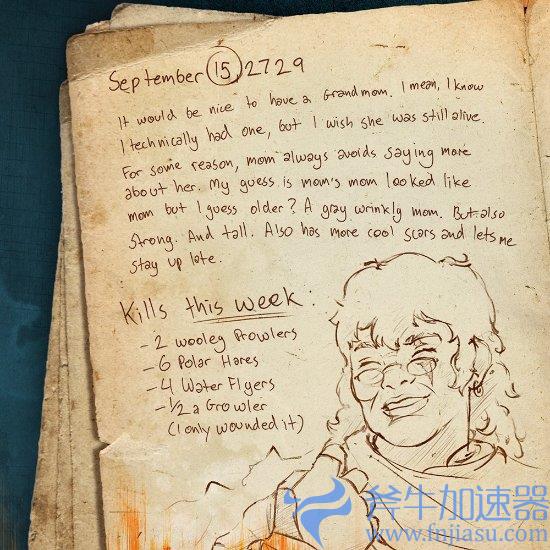 September 15, 2729
It would be nice to have a Grandmom. I mean, I know
I technically had one, but I wish she was still alive.
For some reason, mom always avoids saying more
about her. My guess is mom's mom looked like
mom but I guess older? A gray wrinkly mom. But also
Strong. And tall. Also has more cool scars and lets me
stay up late.
Kills this week:
- 2 wooley Prowlers
- 6 Polar Hares
- 4 Water Flyers
- 1/2 a Growler
(I only wounded it)
斧牛加速器
www.fnjiasu.com